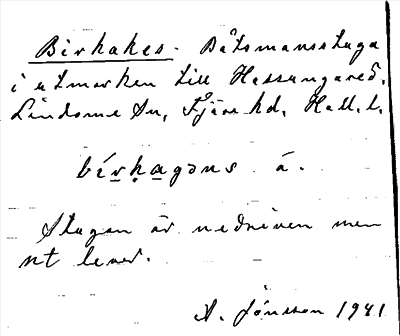 Birhakes. Båtsmansstuga
i utmarken till Hassungared.
Lindome Sn, Fjäre hd, Hall. l.
bírhagəns á.
Stugan är nedriven men
nt lever.
A. Jönsson 1941